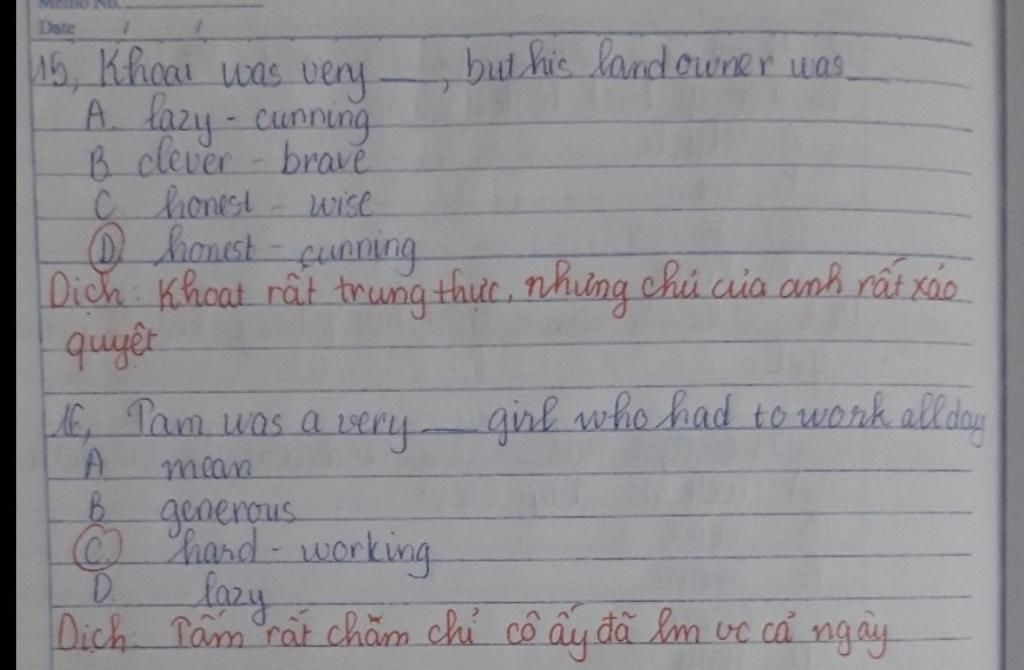 Memo No.
Date / /
15, Khoai was very __, but his landowner was __
A. lazy - cunning
B clever - brave
C. honest - wise
D honest - cunning
Dịch: Khoat rất trung thực, nhưng chủ của anh rất xảo
quyệt
16, Tam was a very __ girl who had to work all day
A mean
B generous
C hard - working
D. lazy
Dịch: Tấm rất chăm chỉ cô ấy đã lm vc cả ngày